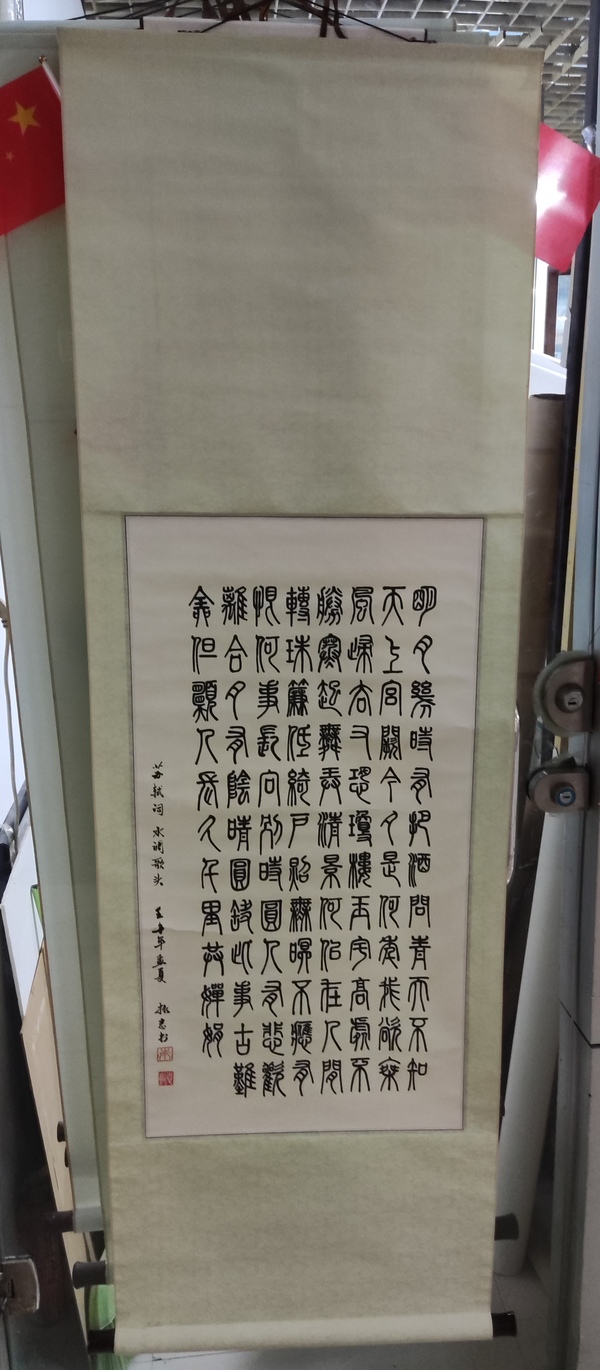 明月幾時有把酒問青天不知
天上宮闕今夕是何年我欲乘
風歸去又恐瓊樓玉宇高處不
勝寒起舞弄清景何似在人間
轉珠簾低綺戶照無眠不應有
恨何事長向別時圓人有悲歡
離合月有陰晴圓缺此事古難
全但願人長久千里共嬋娟
苏轼词 水调歌头 壬午年孟夏 振忠书